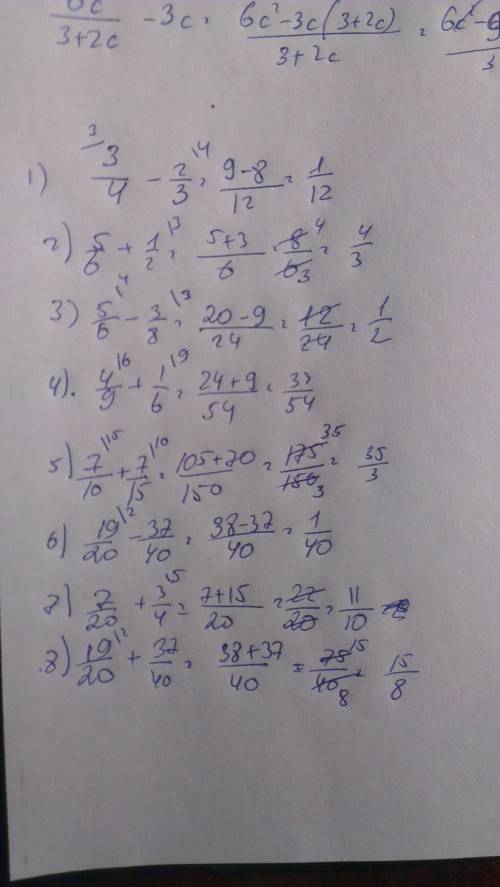 6c/(3+2c) - 3c = (6c² - 3c(3+2c))/(3+2c) = (6c² - 9
1) 3/4 - 2/3 = (9-8)/12 = 1/12
2) 5/6 + 1/2 = (5+3)/6 = 8/6 = 4/3
3) 5/6 - 3/8 = (20-9)/24 = 12/24 = 1/2
4). 4/9 + 1/6 = (24+9)/54 = 33/54
5) 7/10 + 7/15 = (105+70)/150 = 175/150 = 35/3
6) 19/20 - 37/40 = (38-37)/40 = 1/40
7) 7/20 + 3/4 = (7+15)/20 = 22/20 = 11/10
8) 19/20 + 37/40 = (38+37)/40 = 75/40 = 15/8